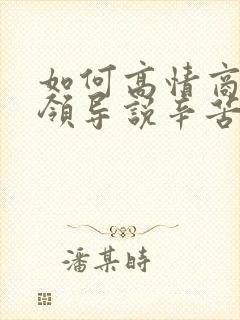 如何高情商
领导说辛苦
潘某時